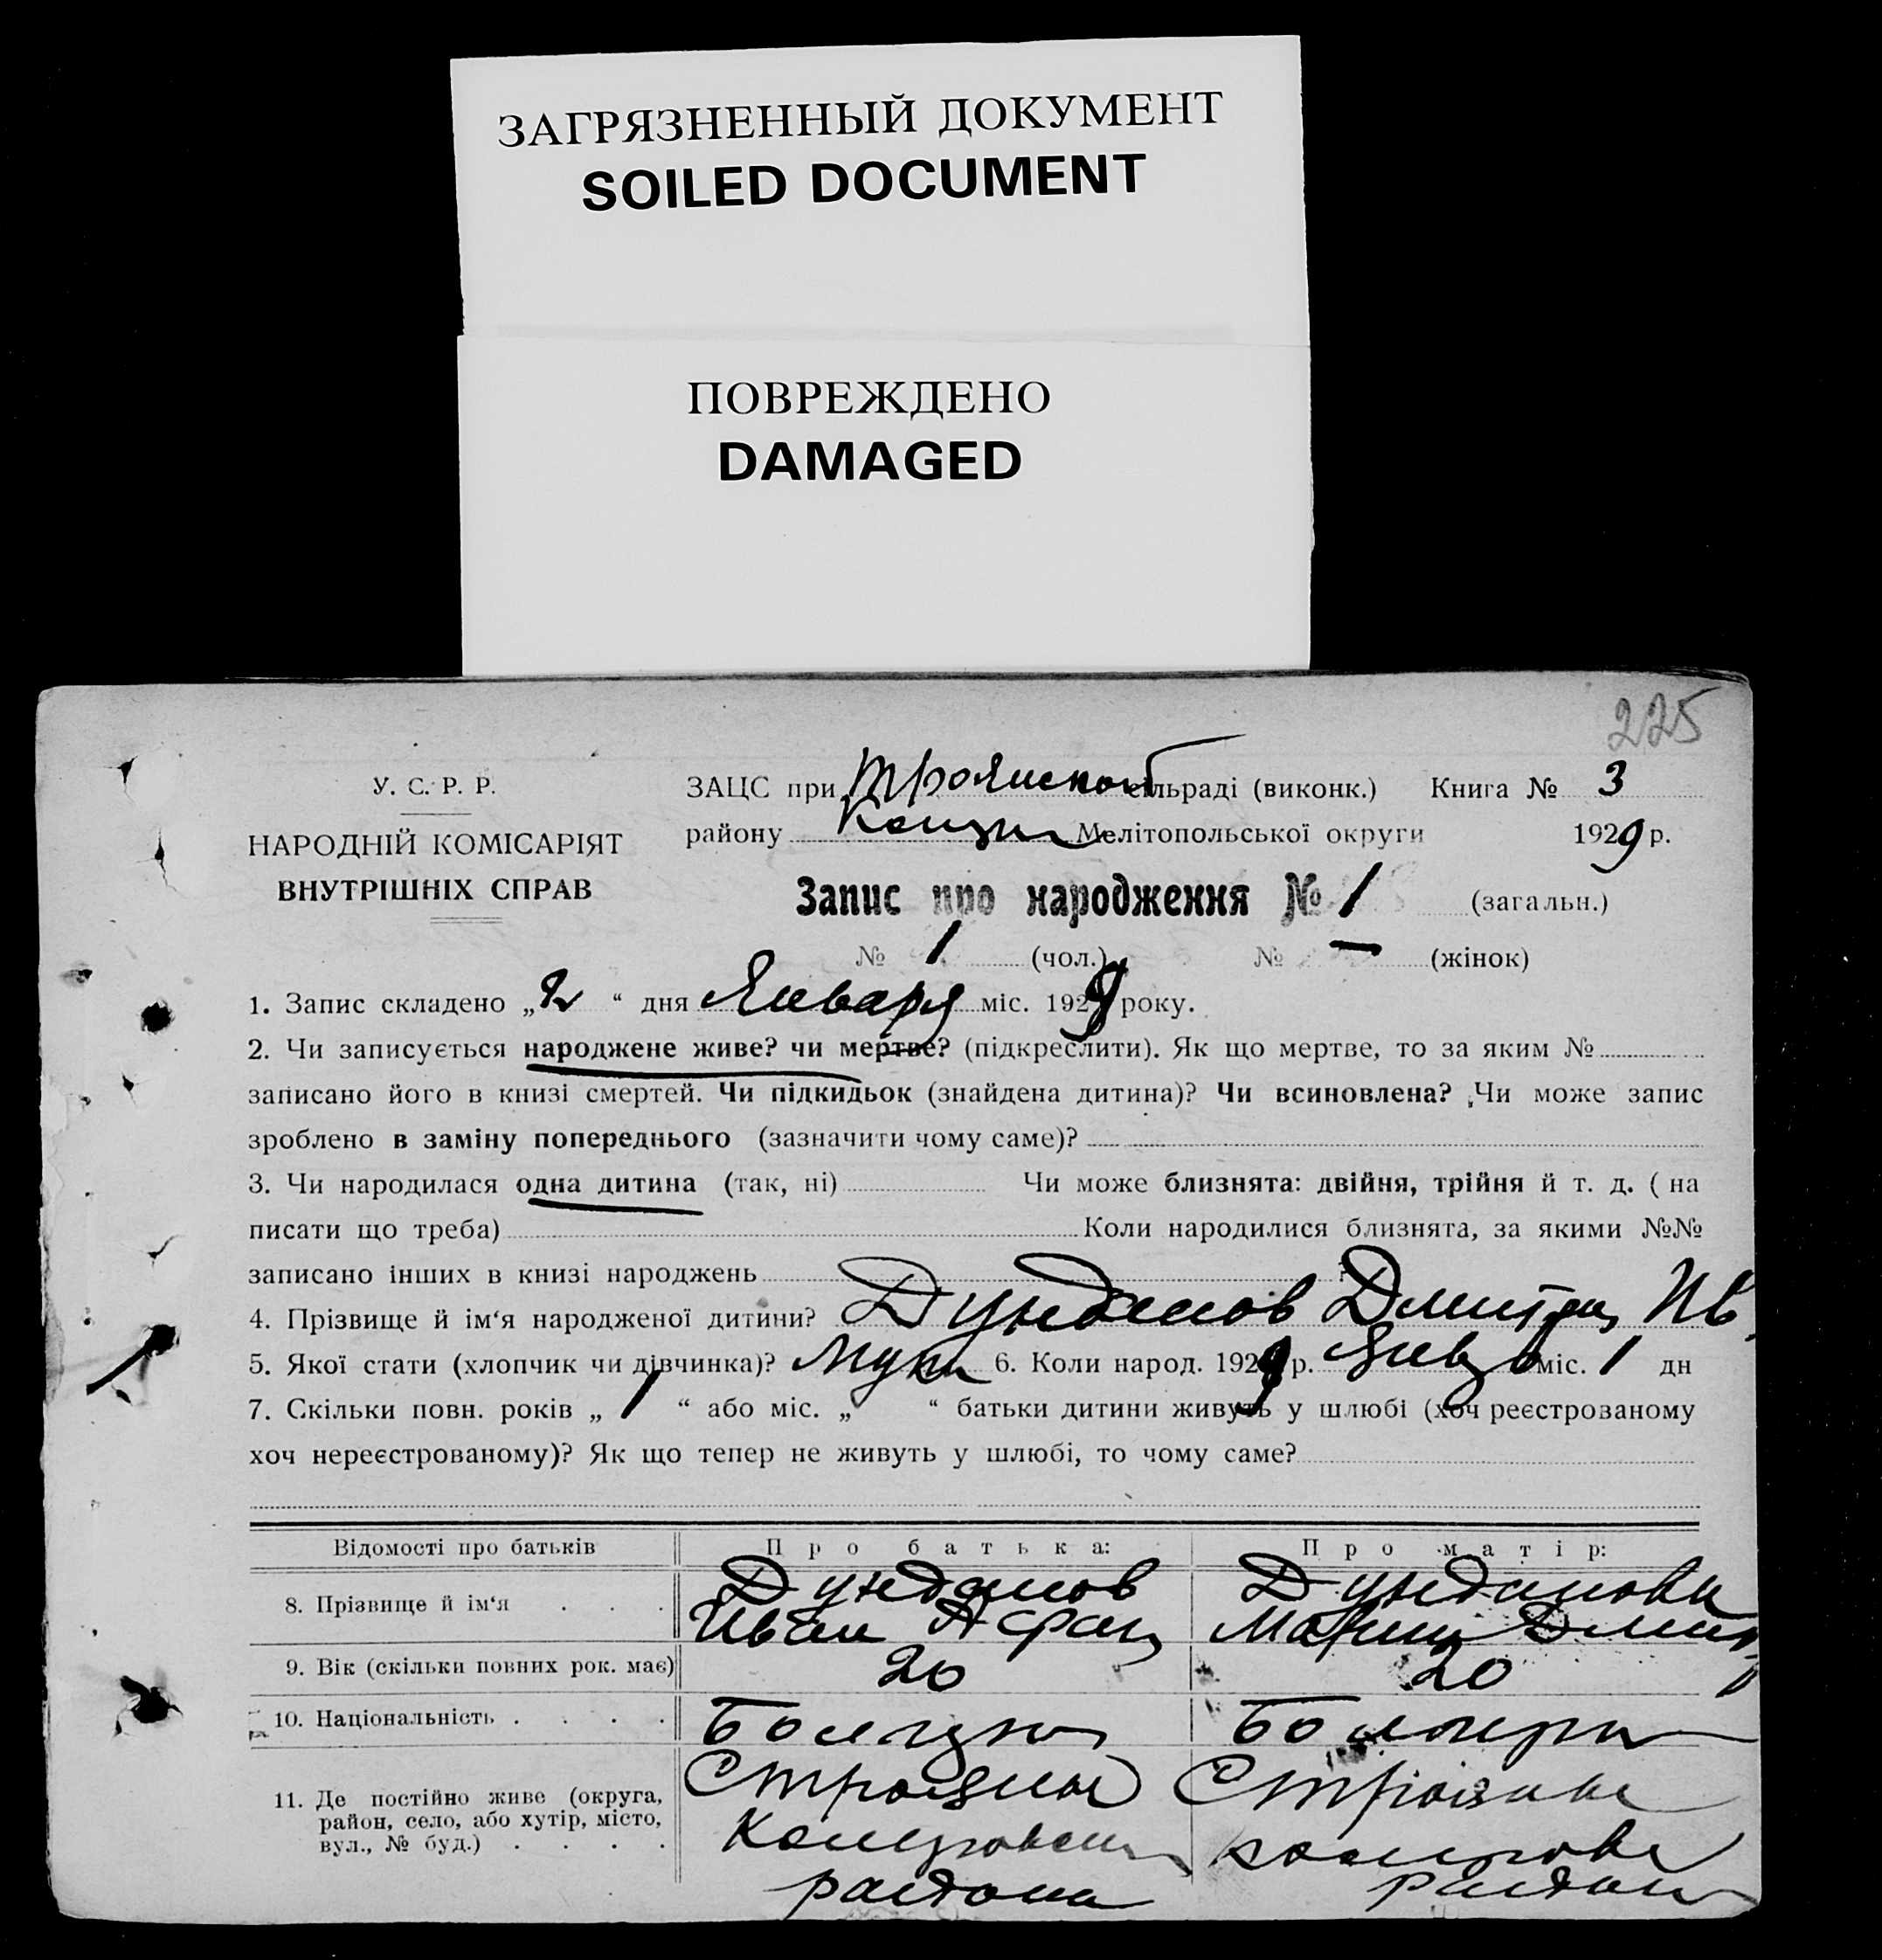 ЗАГРЯЗНЕННЫЙ ДОКУМЕНТ
SOILED DOCUMENT
ПОВРЕЖДЕНО
DAMAGED
225
У. С. Р. Р.
НАРОДНІЙ КОМІСАРІЯТ
ВНУТРІШНІХ СПРАВ
ЗАЦС при Троянской сільраді (виконк.) Книга № 3
району Мелітопольської округи 1929 р.
Запис про народження № 1 (загальн.)
№ 1 (чол.) № — (жінок)
1. Запис складено „2“ дня Января міс. 1929 року.
2. Чи записується народжене живе? чи мертве? (підкреслити). Як що мертве, то за яким №
записано його в книзі смертей. Чи підкидьок (знайдена дитина)? Чи всиновлена? Чи може запис
зроблено в заміну попереднього (зазначити чому саме)?
3. Чи народилася одна дитина (так, ні) Чи може близнята: двійня, трійня й т. д. ( на
писати що треба) Коли народилися близнята, за якими №№
записано інших в книзі народжень
4. Прізвище й ім‘я народженої дитини? Дунданов Дмитри Ив.
5. Якої стати (хлопчик чи дівчинка)? Муж 6. Коли народ. 1929 р. міс. 1 дн
7. Скільки повн. років „ 1 “ або міс. „ “ батьки дитини живуть у шлюбі (хоч реєстрованому
хоч нереєстрованому)? Як що тепер не живуть у шлюбі, то чому саме?
Відомості про батьків Про батька: Про матір:
8. Прізвище й ім‘я . . . Дунданов Дунданова
Иван Афан Мария Дмит
9. Вік (скільки повних рок. має) 20 20
10. Національність . . . .
11. Де постійно живе (округа,
район, село, або хутір, місто,
вул., № буд.) . . . .
С Трояны С Трояны
района район